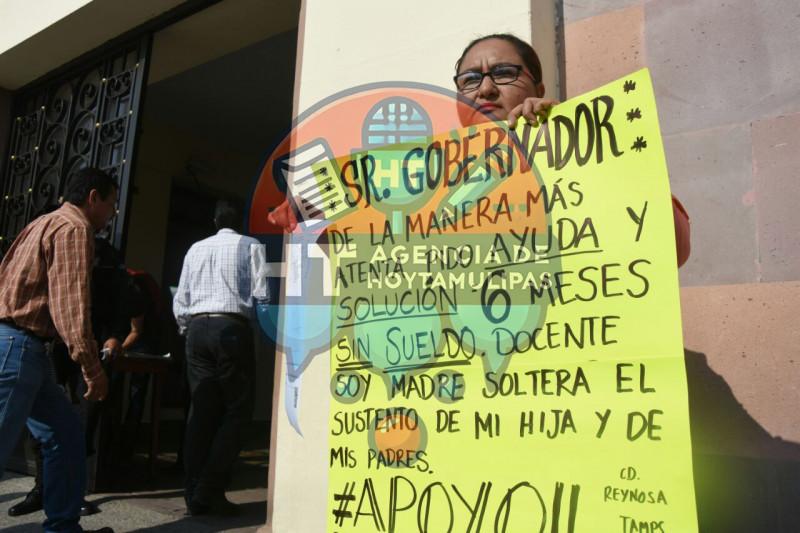 SR. GOBERNADOR:
DE LA MANERA MÁS
ATENTA PIDO AYUDA Y
SOLUCIÓN 6 MESES
SIN SUELDO. DOCENTE
SOY MADRE SOLTERA EL
SUSTENTO DE MI HIJA Y DE
MIS PADRES.
#APOYO!!
CD.
REYNOSA
TAMPS
HT
HT AGENCIA DE
HOYTAMULIPAS